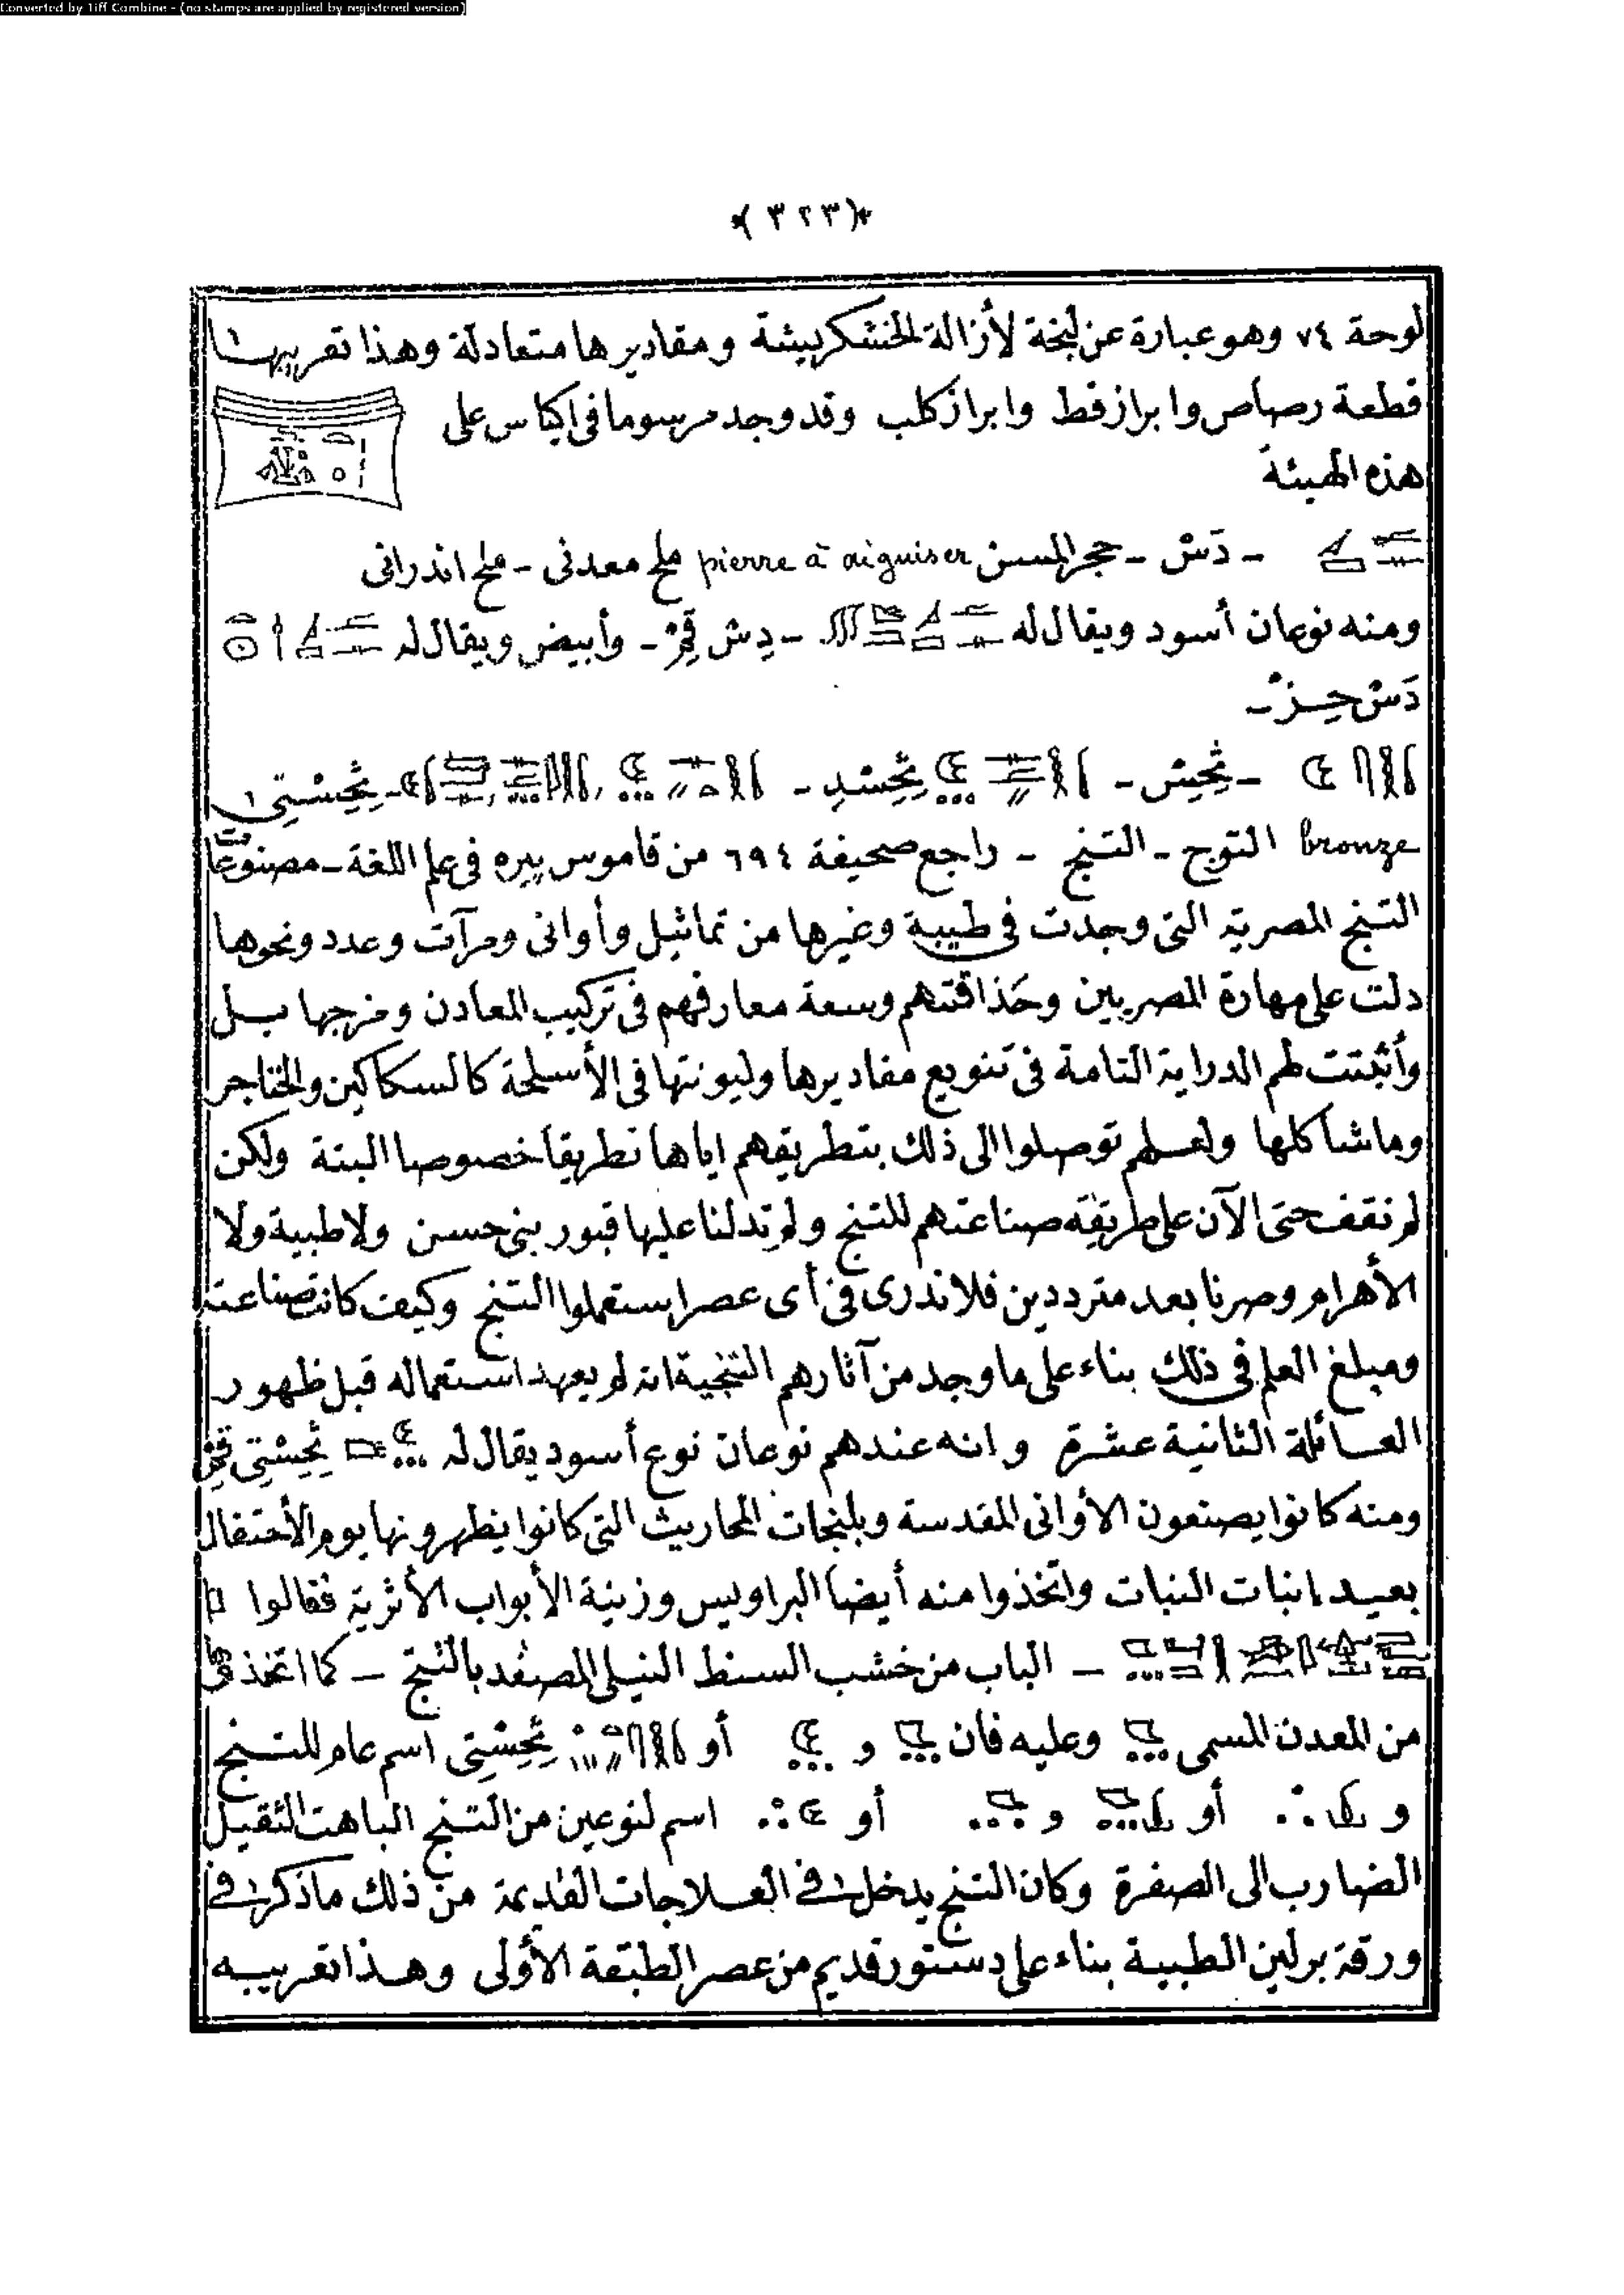 Converted by Tiff Combine - (no stamps are applied by registered version)
(٣٢٣)
لوحة ٧٤ وهو عبارة عن لبخة لأزالة الخشكريشة ومقاديرها متعادلة وهذا تعريبها
قطعة رصاص وابراز قط وابراز كلب وقد وجد مرسوما فى اكياس على
هذه الهيئة
- دَش - حجر المسن pierre à aiguiser ملح معدنى - ملح اندرانى
ومنه نوعان أسود ويقال له - دِش - وأبيض ويقال له
دَش حِز -
- - -
bronze التوج - التنج - راجع صحيفة ٦٩٤ من قاموس پيره فى علم اللغة - مصنوعات
التنج المصرية التى وجدت فى طيبة وغيرها من تماثيل وأوانى ومرآت وعدد ونحوها
دلت على مهارة المصريين وحَذاقتهم وسعة معارفهم فى تركيب المعادن ومزجها بل
وأثبتت لهم الدراية التامة فى تنويع مقاديرها وليونتها فى الأسلحة كالسكاكين والخناجر
وماشاكلها ولعلهم توصلوا الى ذلك بتطريقهم اياها تطريقا خصوصيا البتة ولكن
لم نقف حتى الآن على طريقه صناعتهم للتنج ولم تدلنا عليها قبور بنى حسن ولا طيبة ولا
الأهرام وصرنا بعد مترددين فلاندرى فى أى عصر استعملوا التنج وكيف كانت صناعته
ومبلغ العلم فى ذلك بناء على ما وجد من آثارهم التنجية انه لم يعهد استعماله قبل ظهور
العائلة الثانية عشرة وانه عندهم نوعان نوع أسود يقال له
ومنه كانوا يصنعون الأوانى المقدسة وبلنجات المحاريث التى كانوا يظهرونها يوم الأحتفال
بعيد انبات النبات واتخذوا منه أيضا البراويس وزينة الأبواب الأثرية فقالوا
- الباب من خشب السنط النيلى المصفد بالتنج - كما اتخذ
من المعدن المسمى وعليه فان و أو اسم عام للتنج
و أو و أو اسم لنوعين من التنج الباهت الثقيل
الضارب الى الصفرة وكان التنج يدخل فى العلاجات القديمة من ذلك ماذكر فى
ورقة برلين الطبية بناء على دستور قديم من عصر الطبقة الأولى وهذا تعريبه